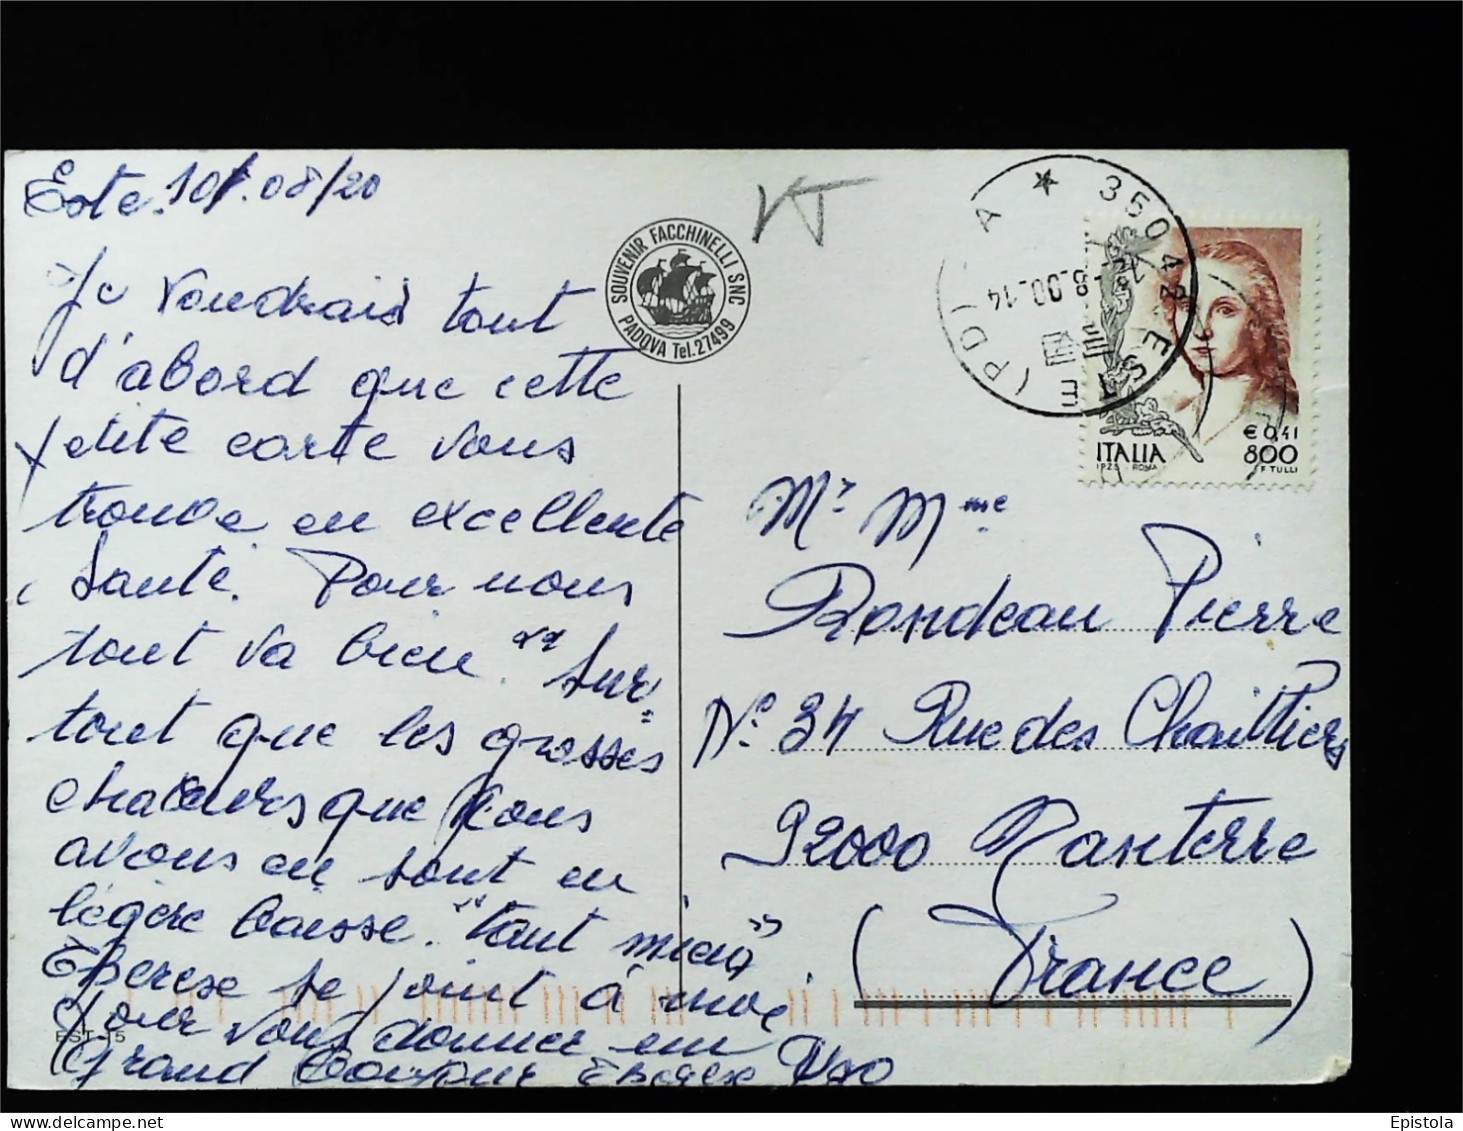 Este. 10/.08/20
Je voudrais tout
d'abord que cette
petite carte vous
trouve en excellente
Santé. Pour nous
tout va bien. Sur=
tout que les grosses
chaleurs que nous
avons en sont en
légère baisse. "tant mieux"
Therese se joint à moi
Pour vous donner un
Grand Therese Ugo
EST-15
SOUVENIR FACCHINELLI SNC
PADOVA Tel.27499
VT
35042 ESTE (PD) A
8.00-14
ITALIA
I.P.Z.S. ROMA
€ 0,41
800
F. TULLI
Mr Mme
Rondeau Pierre
N° 34 Rue des Chaittiers
92000 Nanterre
(France)
Epistola
https://www.delcampe.net